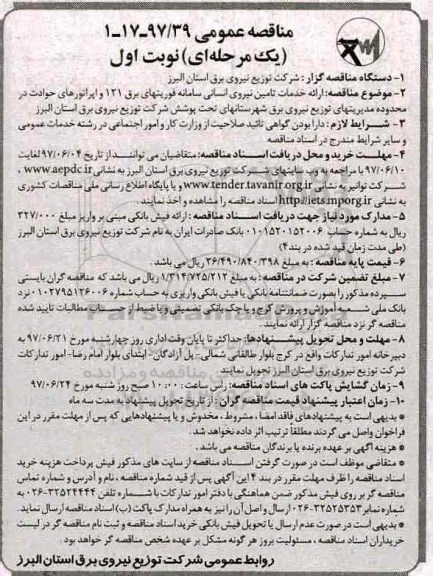 مناقصه عمومی ۹۷/۳۹-۱۷-۱
(یک مرحله‌ای) نوبت اول
۱- دستگاه مناقصه گزار : شرکت توزیع نیروی برق استان البرز
۲- موضوع مناقصه: ارائه خدمات تامین نیروی انسانی سامانه فوریتهای برق ۱۲۱ و اپراتورهای حوادث در
محدوده مدیریتهای توزیع نیروی برق شهرستانهای تحت پوشش شرکت توزیع نیروی برق استان البرز
۳- شرایط لازم : دارا بودن گواهی تائید صلاحیت از وزارت کار و امور اجتماعی در رشته خدمات عمومی
و سایر شرایط مندرج در اسناد مناقصه
۴- مهلت خرید و محل دریافت اسناد مناقصه: متقاضیان می توانند از تاریخ ۹۷/۰۶/۰۴ لغایت
۹۷/۰۶/۱۰ با مراجعه به وب سایتهای شرکت توزیع نیروی برق استان البرز به نشانی www.aepdc.ir ،
شرکت توانیر به نشانی www.tender.tavanir.org.ir و یا پایگاه اطلاع رسانی ملی مناقصات کشوری
به نشانی http://iets.mporg.ir اسناد مناقصه را مشاهده و اخذ نمایند.
۵- مدارک مورد نیاز جهت دریافت اسناد مناقصه : ارائه فیش بانکی مبنی بر واریز مبلغ ۳۲۷/۰۰۰
ریال به شماره حساب ۰۱۰۱۵۲۰۱۵۲۰۰۶ بانک صادرات ایران به نام شرکت توزیع نیروی برق استان البرز
(طی مدت زمان قید شده در بند ۴)
۶- قیمت پایه مناقصه : به مبلغ ۲۶/۴۹۰/۸۴۰/۳۹۸ ریال می باشد.
۷- مبلغ تضمین شرکت در مناقصه : به مبلغ ۱/۳۱۴/۷۲۵/۲۱۲ ریال می باشد که مناقصه گران بایستی
سپرده مذکور را بصورت ضمانتنامه بانکی یا فیش بانکی واریزی به حساب شماره ۰۱۰۲۷۹۵۱۲۶۰۰۶ نزد
بانک ملی شعبه آموزش و پرورش کرج و یا چک بانکی تضمینی و یا ضبط از حساب مطالبات تایید شده
مناقصه گر نزد مناقصه گزار ارائه نمایند.
۸- مهلت و محل تحویل پیشنهادها: حداکثر تا پایان وقت اداری روز چهارشنبه مورخ ۹۷/۰۶/۲۱ به
دبیرخانه امور تدارکات واقع در کرج بلوار طالقانی شمالی- پل آزادگان- ابتدای بلوار امام رضا- امور تدارکات
شرکت توزیع نیروی برق استان البرز تحویل نمایند.
۹- زمان گشایش پاکت های اسناد مناقصه: رأس ساعت ۱۰:۰۰ صبح روز شنبه مورخ ۹۷/۰۶/۲۴
۱۰- زمان اعتبار پیشنهاد قیمت مناقصه گران : از تاریخ تحویل پیشنهاد به مدت سه ماه
* بدیهی است به پیشنهادهای فاقد امضا ، مشروط ، مخدوش و یا پیشنهادهایی که پس از مهلت مقرر در این
فراخوان واصل می گردند مطلقاً ترتیب اثر داده نخواهد شد.
* هزینه آگهی بر عهده برنده یا برندگان مناقصه می باشد .
* متقاضی موظف است در صورت گرفتن اسناد مناقصه از سایت های مذکور فیش پرداخت هزینه خرید
اسناد مناقصه را ظرف مهلت مقرر در بند ۴ این آگهی پس از قید شماره مناقصه ، نام و آدرس و شماره تماس
مناقصه گر بر روی فیش مذکور ضمن هماهنگی با دفتر امور تدارکات با شماره تلفن ۳۲۵۲۴۴۴۴-۰۲۶ به
شماره نمابر ۳۲۵۲۵۳۵۳-۰۲۶ ارسال و اصل آن را نیز به همراه مدارک پاکت (ب) اسناد مناقصه ارسال نماید.
* بدیهی است در صورت عدم ارسال یا تحویل فیش بانکی خرید اسناد مناقصه و ثبت نام مناقصه گر در لیست
خریداران اسناد مناقصه ، مسئولیت بروز هر گونه مشکل بر عهده شخص مناقصه گر خواهد بود .
روابط عمومی شرکت توزیع نیروی برق استان البرز